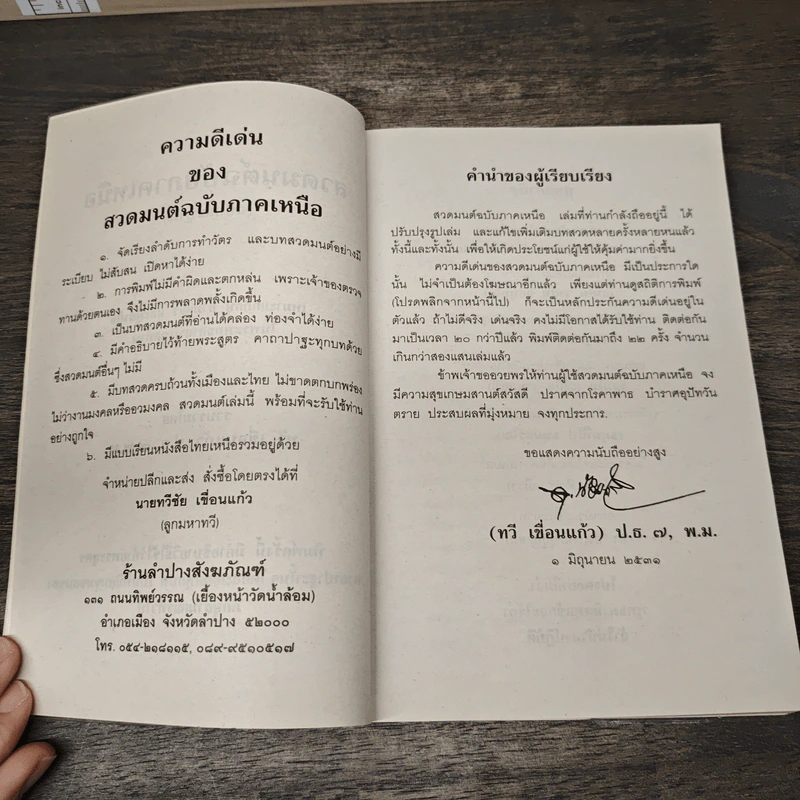 ความดีเด่น
ของ
สวดมนต์ฉบับภาคเหนือ
๑. จัดเรียงลำดับการทำวัตร และบทสวดมนต์อย่างมี
ระเบียบ ไม่สับสน เปิดหาได้ง่าย
๒. การพิมพ์ไม่มีคำผิดและตกหล่น เพราะเจ้าของตรวจ
ทานด้วยตนเอง จึงไม่มีการพลาดพลั้งเกิดขึ้น
๓. เป็นบทสวดมนต์ที่อ่านได้คล่อง ท่องจำได้ง่าย
๔. มีคำอธิบายไว้ท้ายพระสูตร คาถาปาฐะทุกบทด้วย
ซึ่งสวดมนต์อื่นๆ ไม่มี
๕. มีบทสวดครบถ้วนทั้งเมืองและไทย ไม่ขาดตกบกพร่อง
ไม่ว่างานมงคลหรืออวมงคล สวดมนต์เล่มนี้ พร้อมที่จะรับใช้ท่าน
อย่างถูกใจ
๖. มีแบบเรียนหนังสือไทยเหนือรวมอยู่ด้วย
จำหน่ายปลีกและส่ง สั่งซื้อโดยตรงได้ที่
นายทวีชัย เขื่อนแก้ว
(ลูกมหาทวี)
ร้านลำปางสังฆภัณฑ์
๑๓๑ ถนนทิพย์วรรณ (เยื้องหน้าวัดน้ำล้อม)
อำเภอเมือง จังหวัดลำปาง ๕๒๐๐๐
โทร. ๐๕๔-๒๑๘๑๑๕, ๐๘๙-๙๕๑๐๕๑๗
คำนำของผู้เรียบเรียง
สวดมนต์ฉบับภาคเหนือ เล่มที่ท่านกำลังถืออยู่นี้ ได้
ปรับปรุงรูปเล่ม และแก้ไขเพิ่มเติมบทสวดหลายครั้งหลายหนแล้ว
ทั้งนี้และทั้งนั้น เพื่อให้เกิดประโยชน์แก่ผู้ใช้ให้คุ้มค่ามากยิ่งขึ้น
ความดีเด่นของสวดมนต์ฉบับภาคเหนือ มีเป็นประการใด
นั้น ไม่จำเป็นต้องโฆษณาอีกแล้ว เพียงแต่ท่านดูสถิติการพิมพ์
(โปรดพลิกจากหน้านี้ไป) ก็จะเป็นหลักประกันความดีเด่นอยู่ใน
ตัวแล้ว ถ้าไม่ดีจริง เด่นจริง คงไม่มีโอกาสได้รับใช้ท่าน ติดต่อกัน
มาเป็นเวลา ๒๐ กว่าปีแล้ว พิมพ์ติดต่อกันมาถึง ๒๒ ครั้ง จำนวน
เกินกว่าสองแสนเล่มแล้ว
ข้าพเจ้าขออวยพรให้ท่านผู้ใช้สวดมนต์ฉบับภาคเหนือ จง
มีความสุขเกษมสานต์สวัสดี ปราศจากโรคาพาธ บำราศอุปัทวัน
ตราย ประสบผลที่มุ่งหมาย จงทุกประการ.
ขอแสดงความนับถืออย่างสูง
(ทวี เขื่อนแก้ว) ป.ธ. ๗, พ.ม.
๑ มิถุนายน ๒๕๓๑